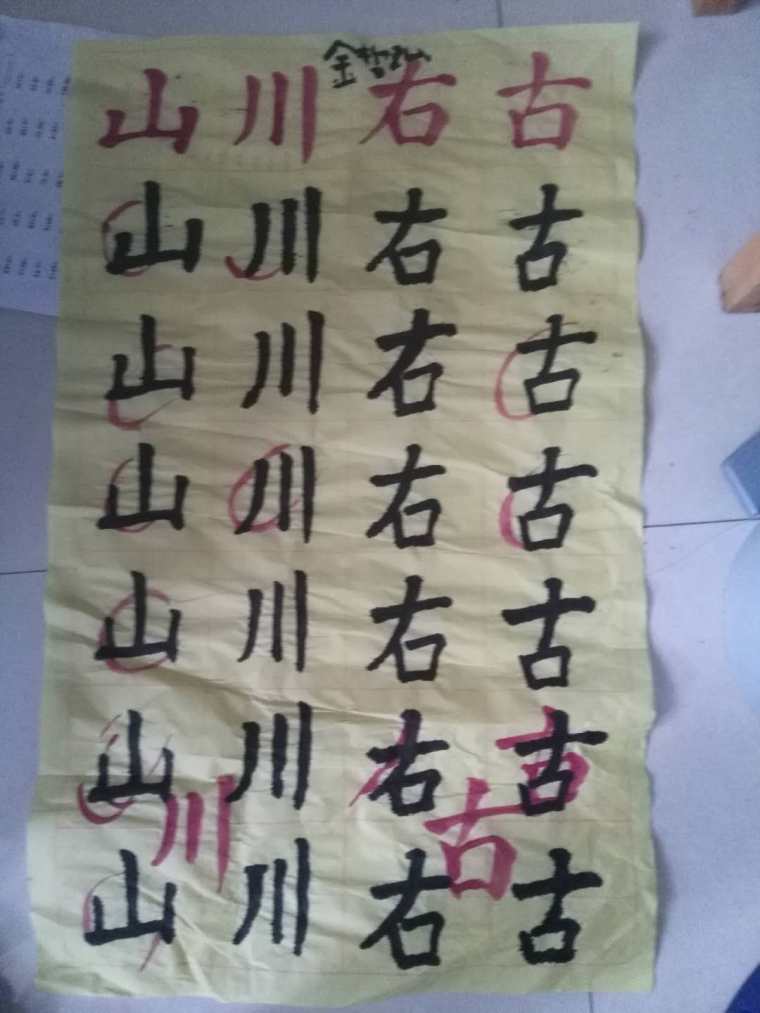 山川右古
山川右古
山川右古
山川右古
山川右古
山川右古
川古
山川右古